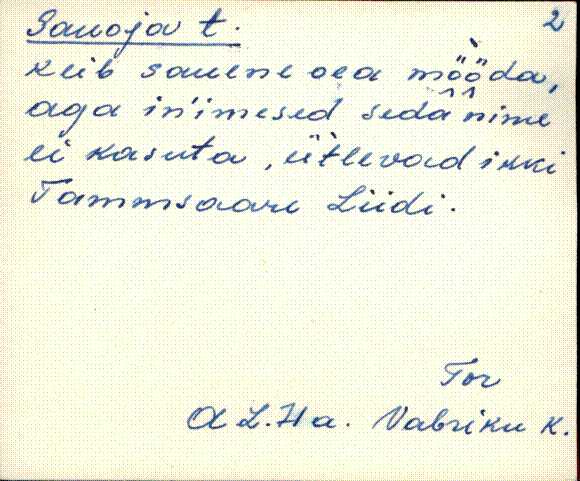 2
Sauoja t.
keib sauene oea mö̀öda,
aga in'imesed sedâ nîme
ei kasuta, ütlevad ikki
Tammsaare Liidi.
Tor
A L.Ha. Vabriku k.